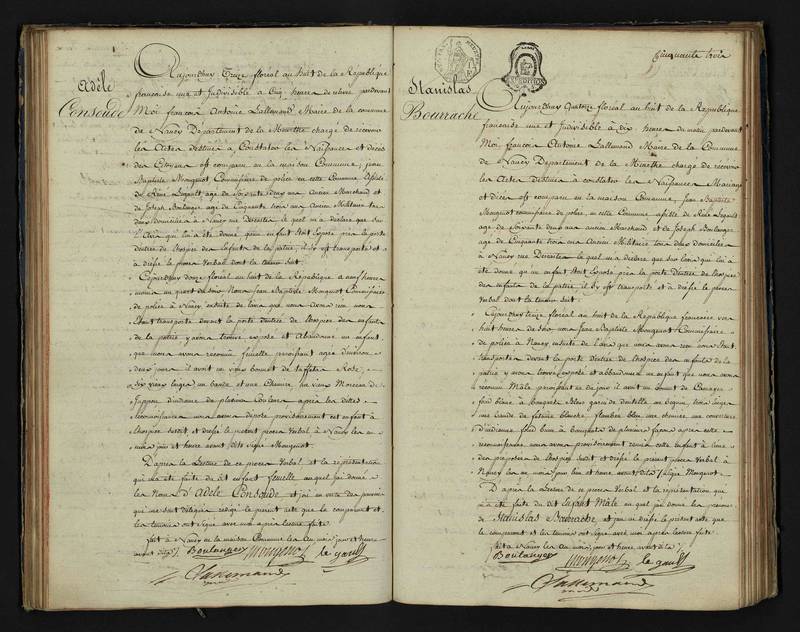 Adèle
Consoude
Aujourd'huy Treize floreal an huit de la République
francaise une et Indivisible à Cinq heures de relevée pardevant
Moi françois Antoine Lallemand Maire de la commune
de Nancy Département de la Meurthe chargé de recevoir
les Actes destinés à Constater les Naissances et décès
des Citoyens est comparu en la maison Commune, Jean
Baptiste Mougenot Commissaire de police en cette Commune assisté
de Rémi Legault age de soixante deux ans ancien Marchand et
de Joseph Boulanger age de Cinquante trois ans ancien Militaire tous
deux domiciliés à Nancy rue lequel m'a déclaré que sur
l'avis qui lui a été donné qu'un enfant était exposé près la porte
d'entrée de l'hospice des Enfants de la patrie, il s'y est transporté et
a dressé le procès Verbal dont la teneur suit:
Cejourd'huy douze floreal an huit de la République a neuf heures
moins un quart du soir Nous Jean Baptiste Mougenot Commissaire
de police à Nancy ensuite de l'avis que nous avons reçu nous
étant transporté devant la porte d'entrée de l'hospice des enfants
de la patrie y avons trouvé exposé et abandonné un enfant
que nous avons reconnu femelle paroissant agé d'environ
deux jours il avoit un vieux bonnet de taffetas Rose,
six vieux langes un bande et une Chemise, un vieux Morceau de
Juppon d'indienne de plusieurs couleurs après les dittes
reconnaissances nous avons déposé provisoirement cet enfant à
l'hospice susdit et dressé le présent procès Verbal à Nancy les an
mois jour et heure avant dits signé Mougenot.
D'après la Lecture de ce procès Verbal et la représentation
qui m'a été faite du dit enfant femelle auquel j'ai donné
les Noms d'Adèle Consoude et j'ai en vertu des pouvoirs
qui me sont délégués rédigé le présent acte que le comparant et
les témoins ont signé avec moi après lecture faite
fait à Nancy en la maison Commune les an mois jour et heure
avant dits Boulanger Mougenot le gault
Lallemand
Cinquante trois
Stanislas
Bourrache
Aujourd'huy Quatorze floreal an huit de la République
francaise une et Indivisible à dix heures du matin pardevant
Moi françois Antoine Lallemand Maire de la Commune
de Nancy Département de la Meurthe chargé de recevoir
les Actes Destinés à constater les Naissances Mariages
et décès est comparu en la maison Commune Jean Baptiste
Mougenot commissaire de police en cette Commune assisté de Rémi Legault
age de soixante deux ans ancien Marchand et de Joseph Boulanger
age de Cinquante trois ans Ancien Militaire tous deux domiciliés
à Nancy rue lequel m'a déclaré que sur l'avis qui lui a
été donné qu'un enfant était exposé près la porte d'entrée de l'hospice
des enfants de la patrie, il s'y est transporté et a dressé le procès
Verbal dont la teneur suit:
Cejourd'huy treize floreal an huit de la République francaise vers
huit heures du soir nous Jean Baptiste Mougenot Commissaire
de police à Nancy ensuite de l'avis que nous avons reçu nous étant
transporté devant la porte d'entrée de l'hospice des enfants de la
patrie y avons trouvé exposé et abandonné un enfant que nous avons
reconnu Mâle paroissant né du jour il avoit un bonnet de
fond blanc à bouquets Bleus garni de dentelle un béguin, trois langes
une bande de futaine blanche, bleu une chemise une couverture
d'indienne fond brun à bouquets de plusieurs façons après cette
reconnaissance nous avons provisoirement remis cette enfant à l'une
des préposées de l'hospice susdit et dressé le présent procès verbal à
Nancy les an mois jour et heure avant dits signé Mougenot
D'après la Lecture de ce procès Verbal et la représentation qui
m'a été faite du dit Enfant Mâle au quel j'ai donné les prénoms
de Stanislas Bourrache, et j'ai en dressé le présent acte que
le comparant et les témoins ont signé avec moi après lecture faite
fait à Nancy les an mois jour et heure avant dits
Boulanger Mougenot le gault
Lallemand